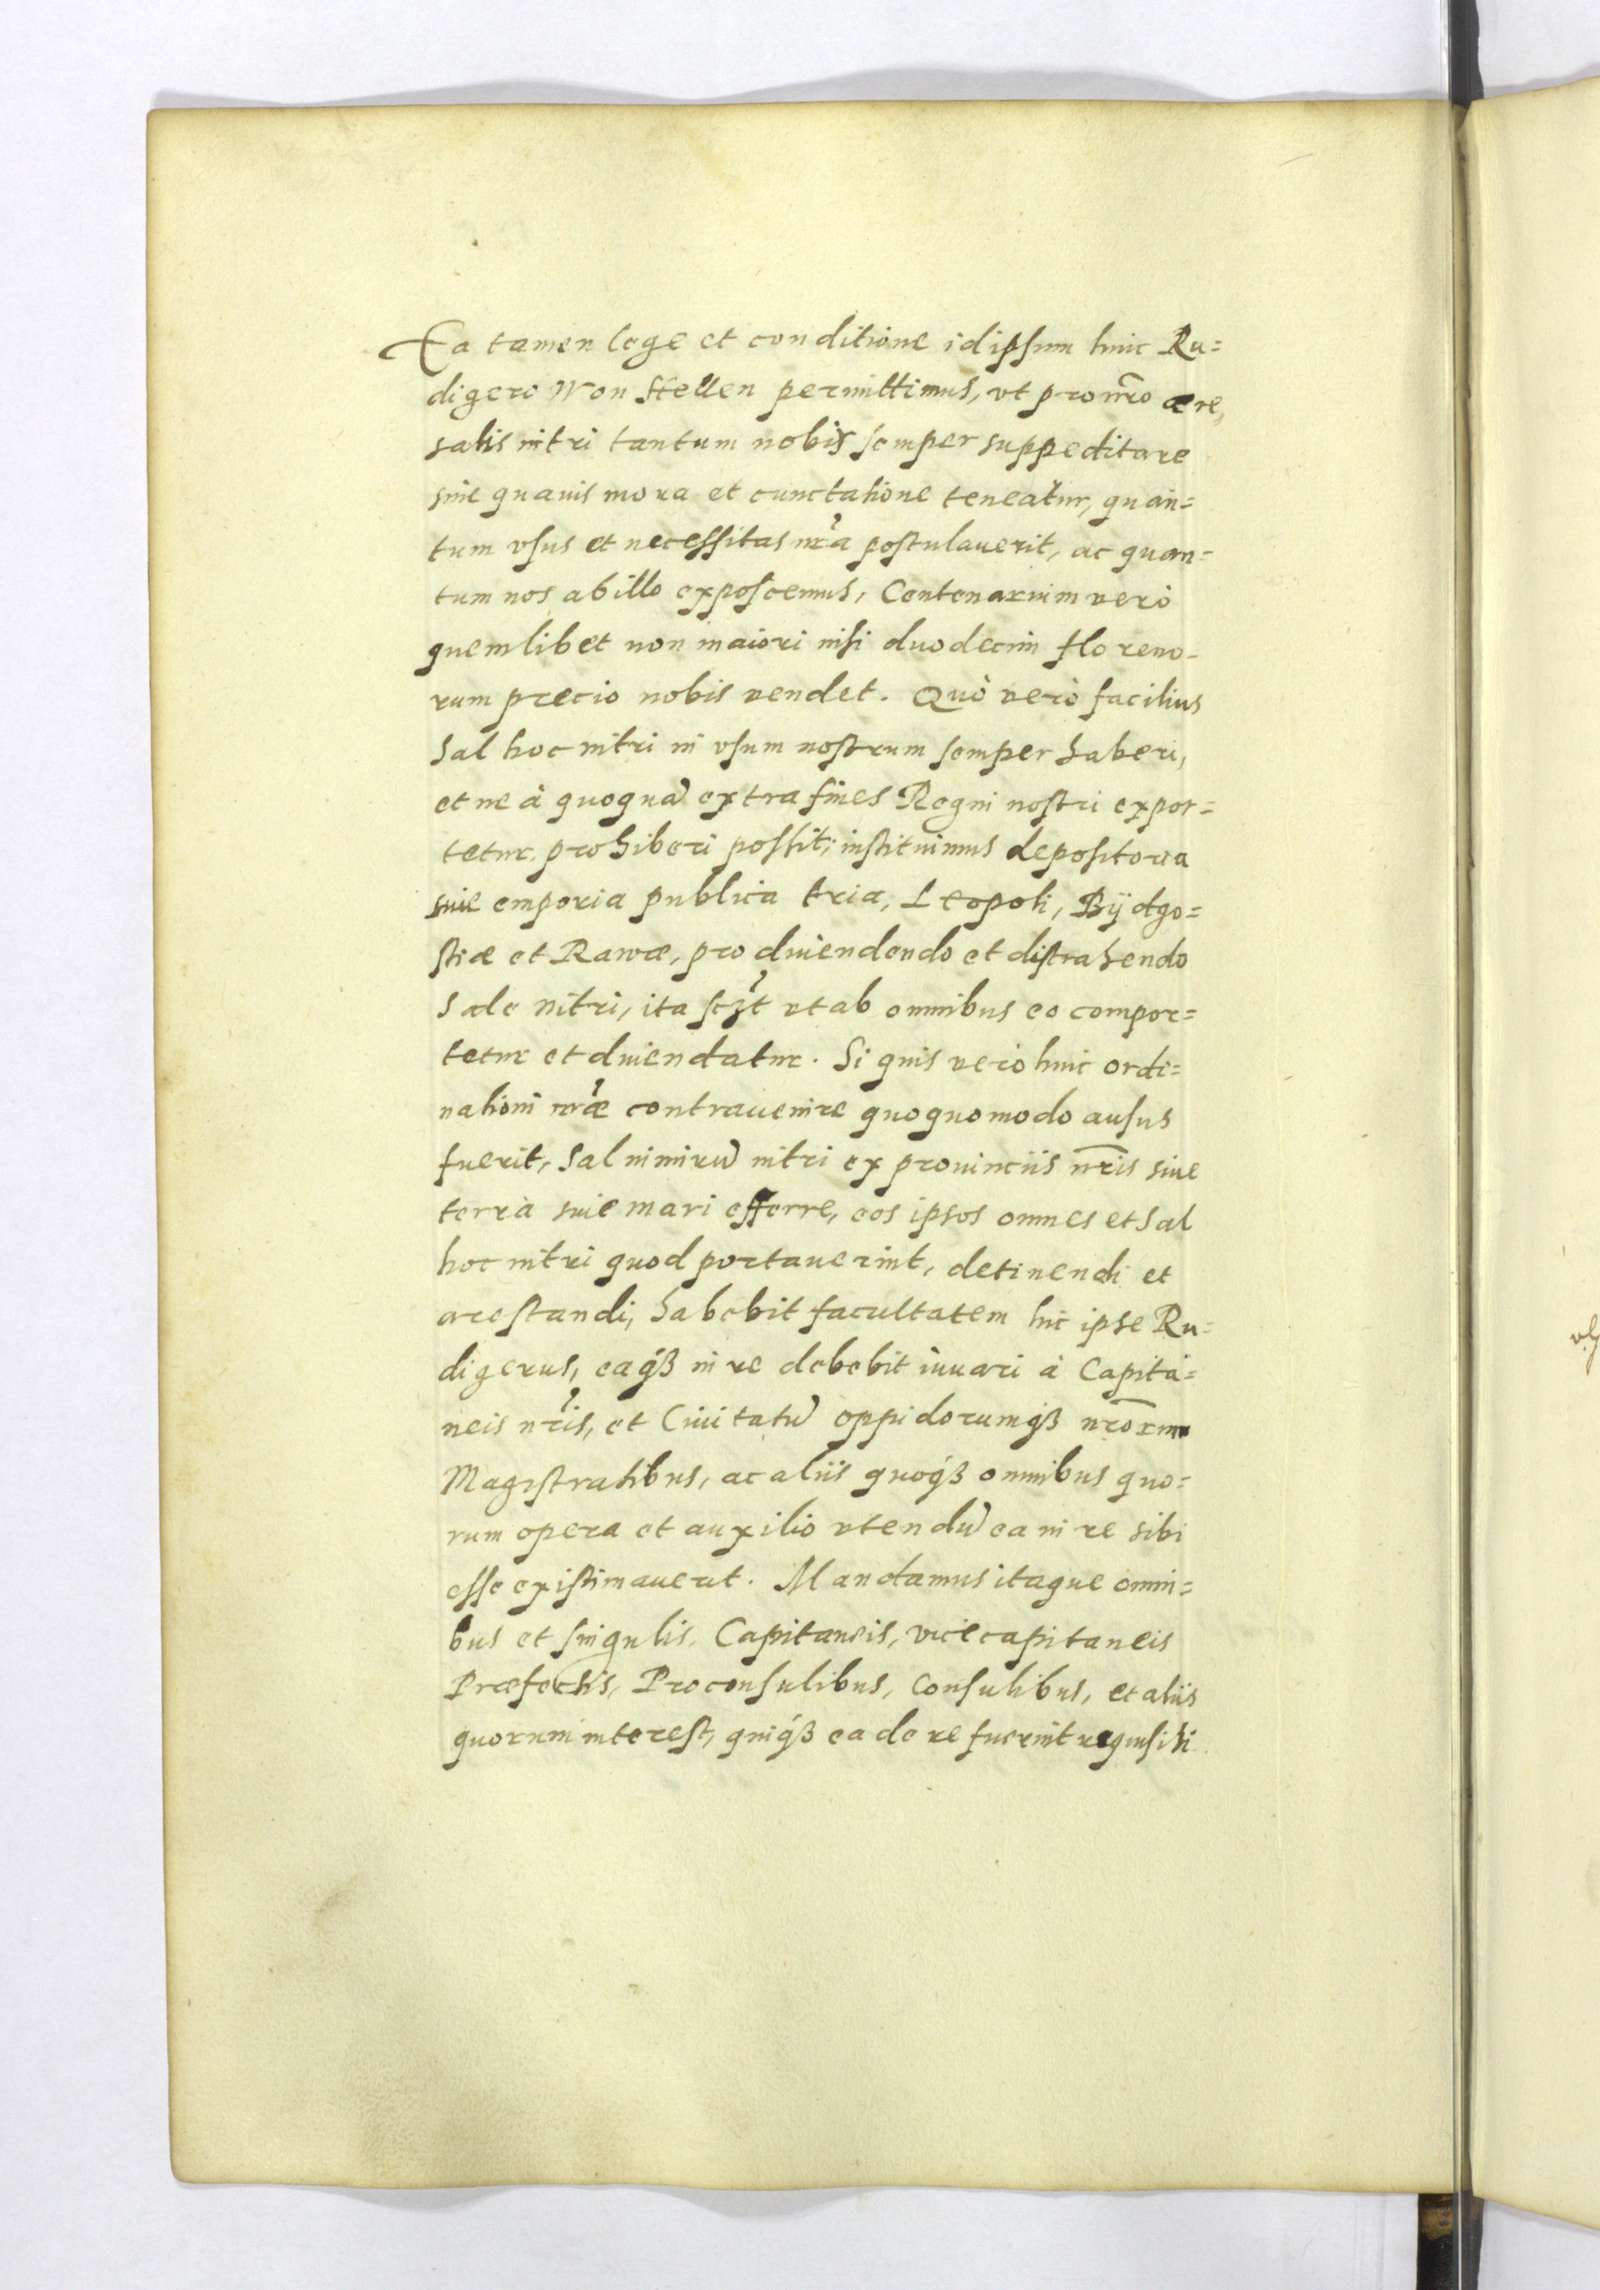 Ea tamen lege et conditione id ipsum huic Ru=
digero Won Stellen permittimus, vt pro nr̃o ære,
salis nitri tantum nobis semper suppeditare
sine quauis mora et cunctatione teneatur, quan=
tum vsus et necessitas nr̃a postulauerit, ac quan=
tum nos ab illo exposcemus, Centenarium verò
quemlibet non maiori nisi duodecim floreno-
rum precio nobis vendet. Quò verò facilius
Sal hoc nitri in vsum nostrum semper haberi,
et ne à quoquã extra fines Regni nostri expor=
tetur prohiberi possit; instituimus depositoria
siue emporia publica tria, Leopoli, Bÿdgo=
stiæ et Rawæ, pro diuendendo et distrahendo
Sale nitri, ita sczt vt ab omnibus eo compor=
tetur et diuendatur. Si quis verò huic ordi=
nationi nr̃æ contrauenire quoquomodo ausus
fuerit, Sal nimirũ nitri ex prouinciis nr̃is siue
terrà siue mari efferre, eos ipsos omnes et Sal
hoc nitri quod portauerint, detinendi et
arestandi, habebit facultatem hic ipse Ru=
digerus, eaqꝫ in re debebit iuuari à Capita=
neis nr̃is, et Ciuitatũ oppidorumqꝫ nr̃orum
Magistratibus, ac aliis quoqꝫ omnibus quo=
rum opera et auxilio vtendũ ea in re sibi
esse existimauerit. Mandamus itaque omni=
bus et singulis, Capitaneis, vicecapitaneis
Præfectis, Proconsulibus, Consulibus, et aliis
quorum interest, quiqꝫ ea de re fuerint requisiti